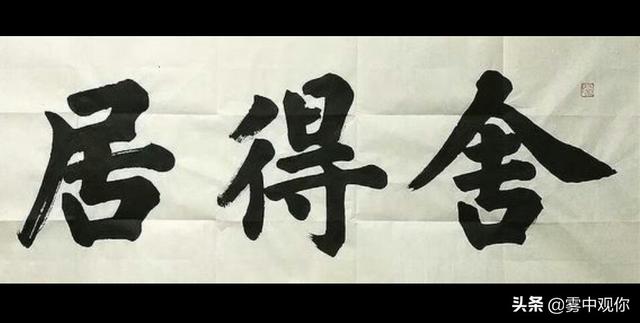 舍得居
头条 @雾中观你